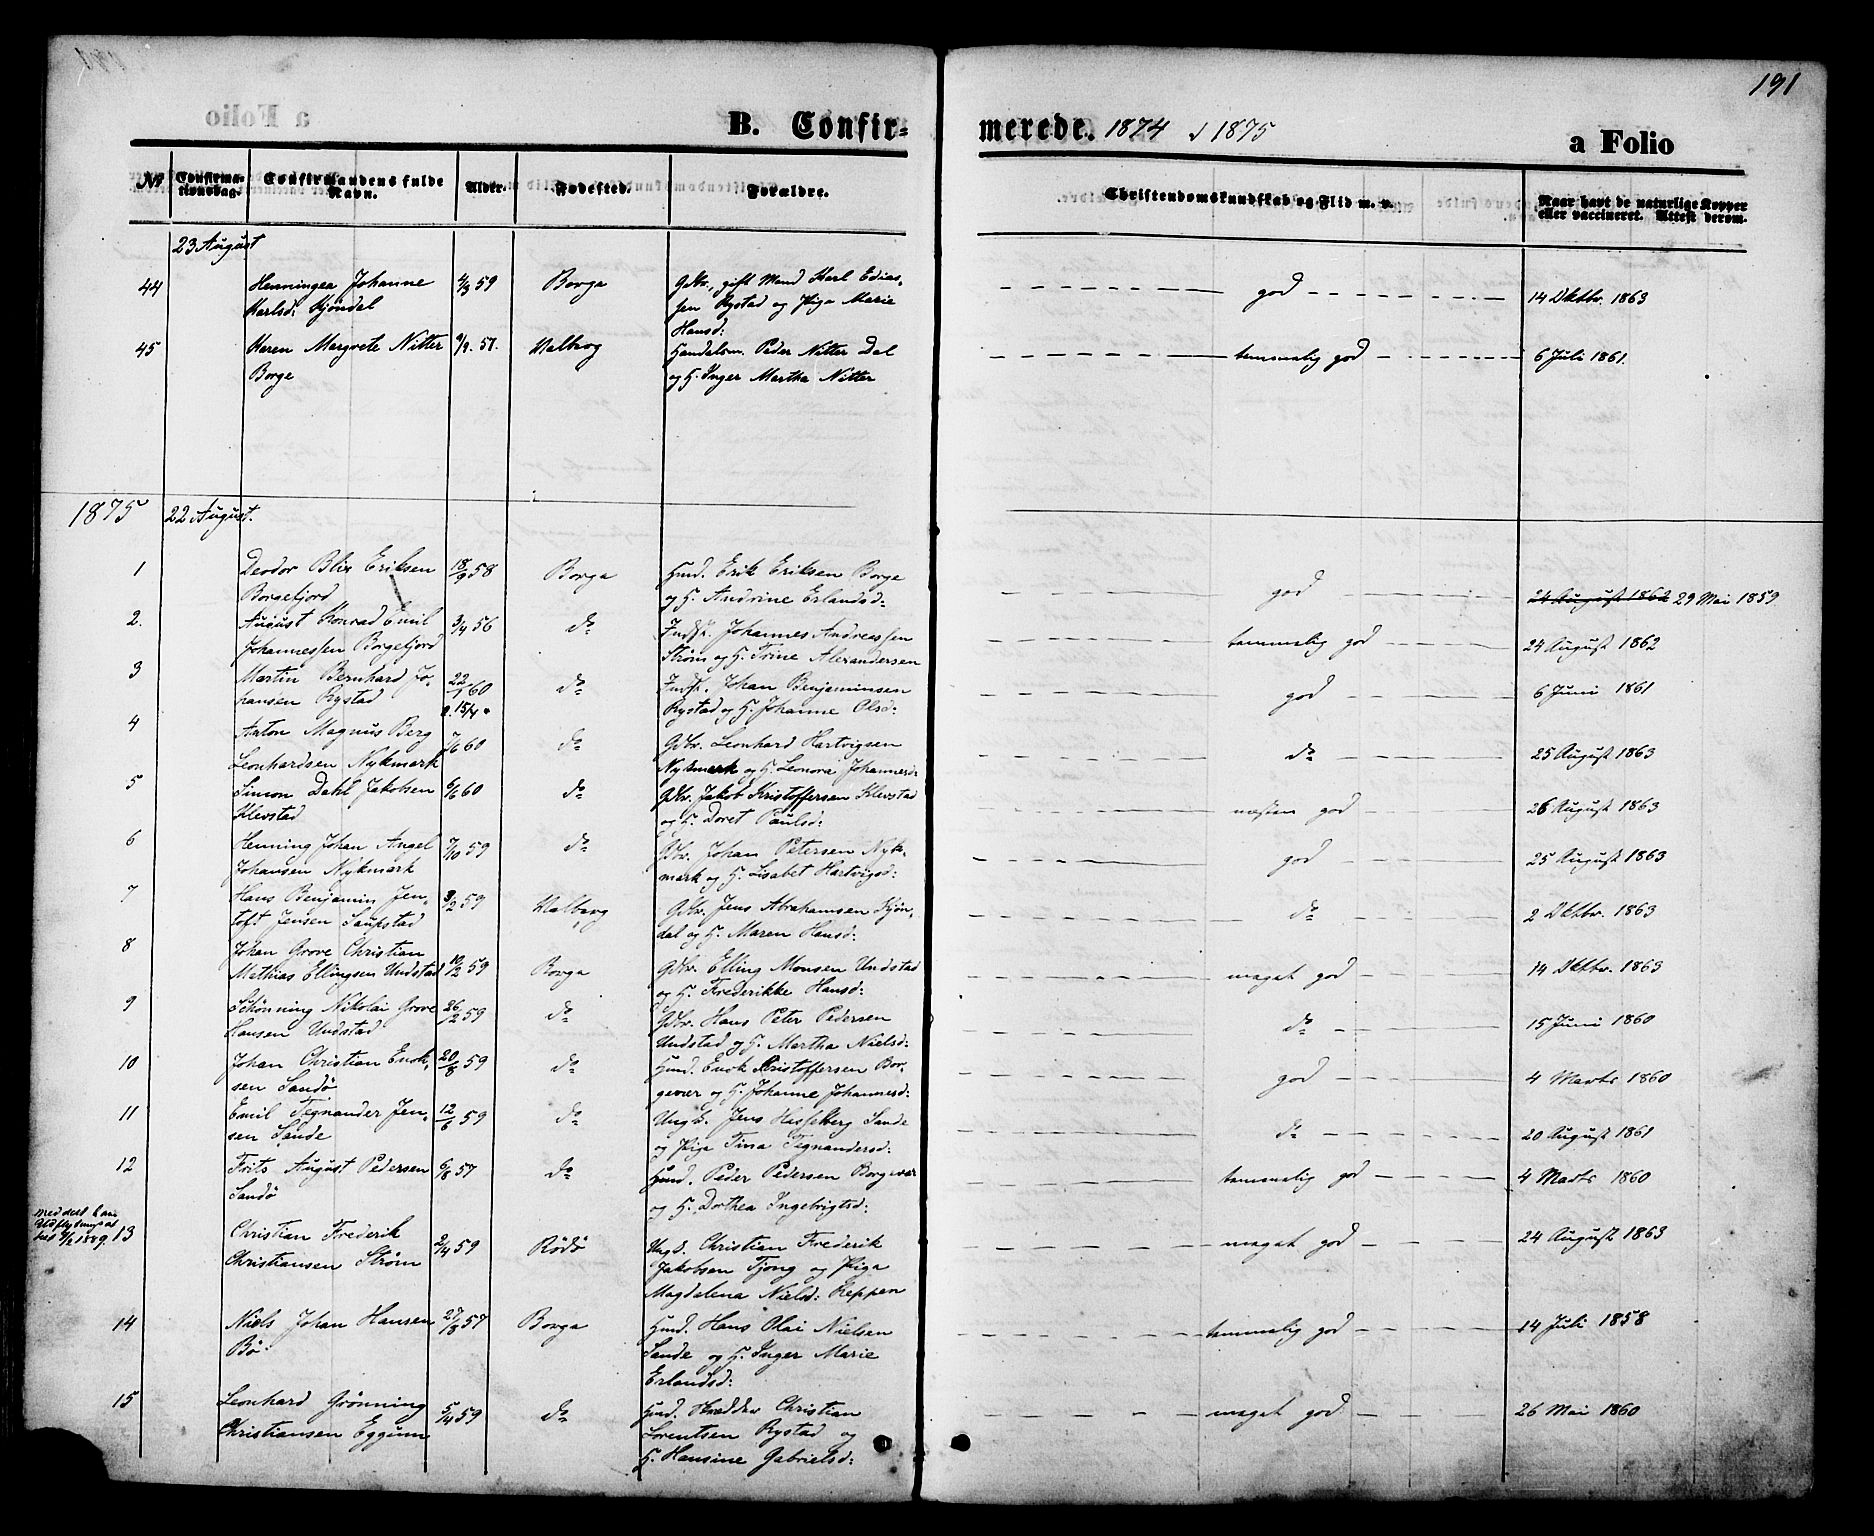 191
B. Confirmerede. 1874 & 1875
a Folio
No. Confirmationsdag. Confirmandens fulde Navn. Alder. Fødested. Forældre. Christendomskundskab og Flid m. v. Naar havt de naturlige Kopper eller vaccineret. Attest derom.
23 August
44 Henningea Johanne 4/3 59 Borge Gbr., gift Mand Karl Edias- god 14 Oktbr. 1863
Karlsd: Kjöndal sen Rystad og Pige Marie
Hansd:
45 Karen Margrete Nitter 57. Valberg Handelsm. Peder Nitter Dal temmelig god 6 Juli 1861.
Borge og H. Inger Martha Nitter
1875 22 August.
1 Deodor Blix Eriksen 18/9 58 Borge Husd. Erik Eriksen Borge god 24 August 1862 29 Mai 1859
Borgefjord og H. Andrine Erlandsd:
2. August Konrad Emil 3/4 56 do Indst. Johannes Andreassen temmelig god 24 August 1862
Johannessen Borgefjord Strøm og H. Trine Alexandersen
3 Martin Bernhard Jo- 22/1 60 do Indst. Johan Benjaminsen god 6 Juni 1861
hansen Rystad Rystad og H. Johanne Olsd:
4 Anton Magnus Berg 7/6 60 do Gbr. Leonhard Hartvigsen do 25 August 1863
Leonhardsen Nykmark Nykmark og H. Leonora Johannesd:
5 Simon Dahl Jakobsen 6/6 60 do Gbr. Jakob Kristoffersen Klevstad næsten god 26 August 1863
Klevstad og H. Doret Paulsd:
6 Henning Johan Angel 7/10 59 do Gbr. Johan Petersen Nyk- god 25 August 1863
Johansen Nykmark mark og H. Lisabet Hartvigsd:
7 Hans Benjamin Jen- 3/2 59 Valberg Gbr. Jens Abrahamsen Kjön- do 2 Oktbr. 1863
toft Jensen Saupstad dal og H. Maren Hansd:
8 Johan Grove Christian
Mathias Ellingsen Undstad 10/12 59 Borge Gbr. Elling Monsen Undstad meget god 14 Oktbr. 1863
og H. Frederikke Hansd:
9 Schönning Nikolai Grove 26/12 59 do Gbr. Hans Peter Pedersen do 15 Juni 1860
Hansen Undstad Undstad og H. Martha Nielsd:
10 Johan Christian Enok- 20/8 59 do Husd. Enok Kristoffersen Bor- god 4 Marts 1860
sen Sandö gevær og H. Johanne Johannesd:
11 Emil Tegnander Jen- 12/6 59 do Ungk. Jens Hisselberg Sande do 20 August 1861
sen Sande og Pige Tina Tegnandersd:
12 Frits August Pedersen 6/8 57 do Husd. Peder Pedersen Borgevær temmelig god 4 Marts 1860
Sandö og H. Dorthea Ingebrigtsd:
Meddelt ham
Udflytningsat
test 1889.
13 Christian Frederik 2/4 59 Rödö Ungk. Christian Frederik meget god 24 August 1863
Christiansen Strøm Jakobsen Tjong og Pige
Magdalena Nielsd: Reppen
14 Niels Johan Hansen 27/8 57 Borge Husd. Hans Olai Nielsen temmelig god 14 Juli 1858
Bö Sande og H. Inger Marie
Erlandsd:
15 Leonhard Grönning 5/4 59 do Husd. Kræmmer Christian meget god 26 Mai 1860
Christiansen Eggum Lorentsen Rystad og
H. Hansine Gabrielsd: